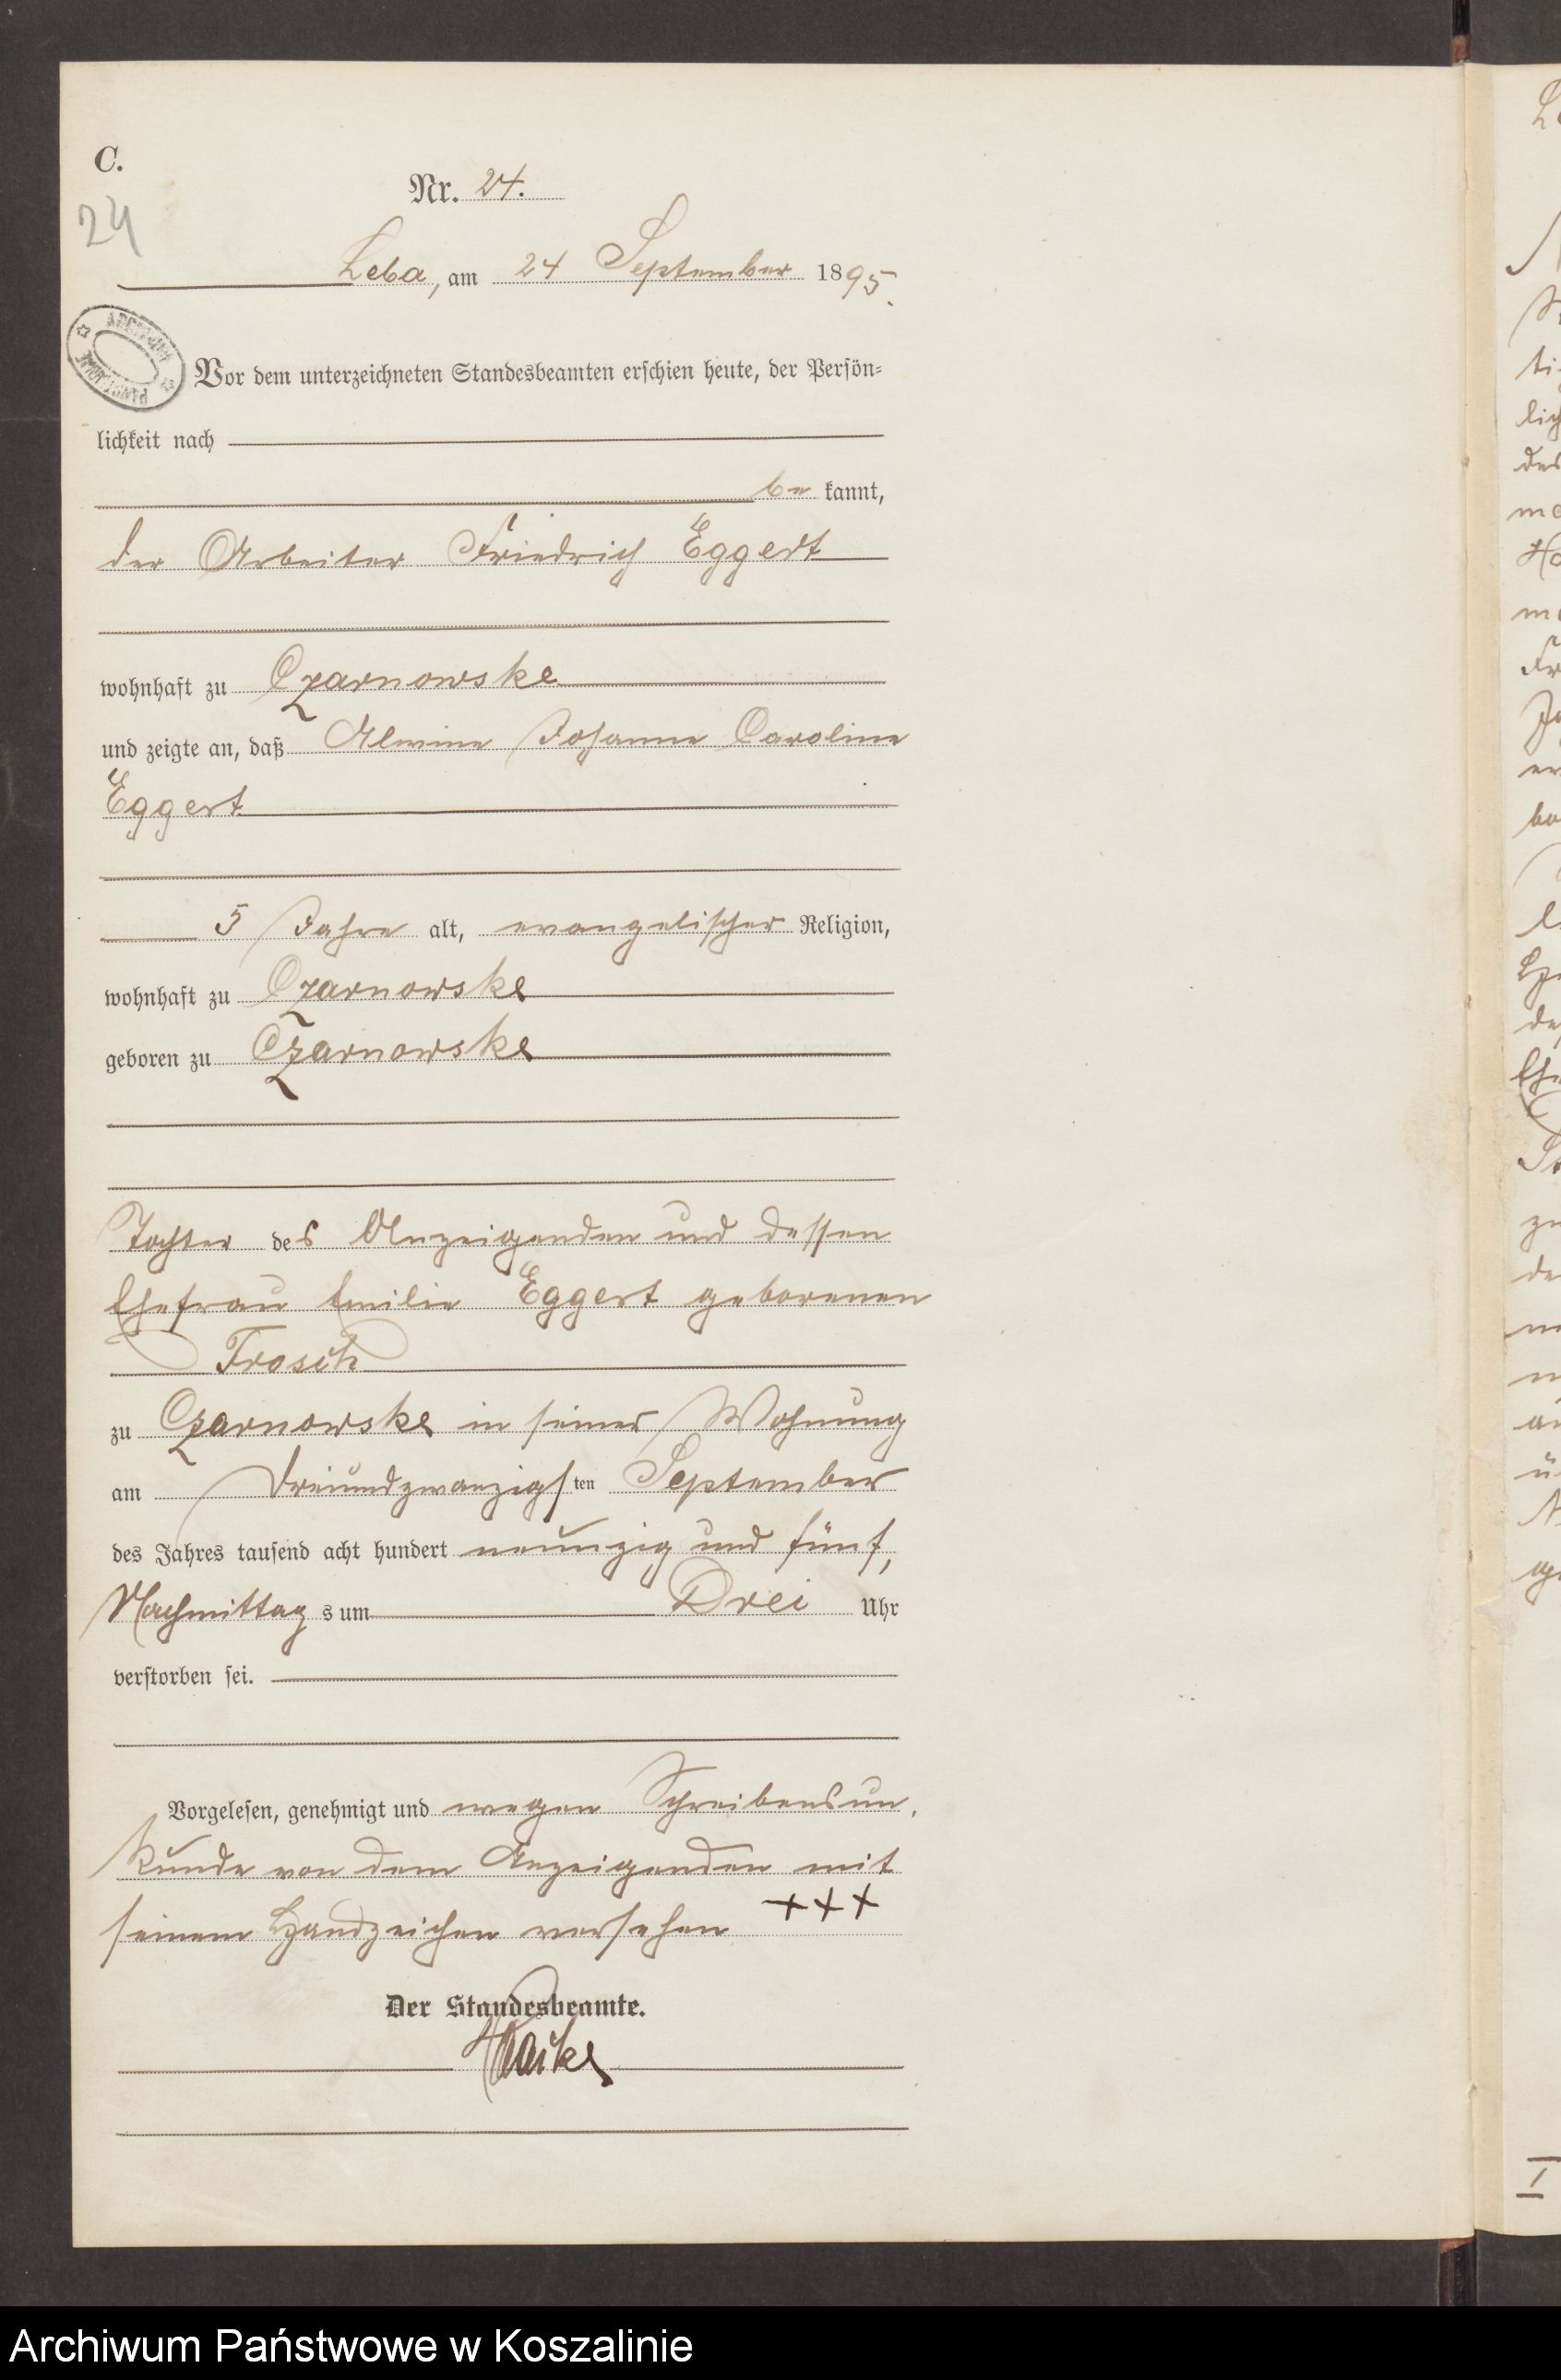 C.
Nr. 24.
24
Leba, am 24 September 1895.
ARCHIWUM
PAŃSTWOWE
Vor dem unterzeichneten Standesbeamten erschien heute, der Persön-
lichkeit nach
be kannt,
der Arbeiter Friedrich Eggert
wohnhaft zu Czarnowske
und zeigte an, daß Alwine Johanne Caroline
Eggert
5 Jahre alt, evangelischer Religion,
wohnhaft zu Czarnowske
geboren zu Czarnowske
Tochter des Anzeigenden und dessen
Ehefrau Emilie Eggert geborenen
Frosch
zu Czarnowske in seiner Wohnung
am Dreiundzwanzigsten September
des Jahres tausend acht hundert neunzig und fünf,
Nachmittags um Drei Uhr
verstorben sei.
Vorgelesen, genehmigt und wegen Schreibensun-
kunde von dem Anzeigenden mit
seinem Handzeichen versehen +++
Der Standesbeamte.
Archiwum Państwowe w Koszalinie